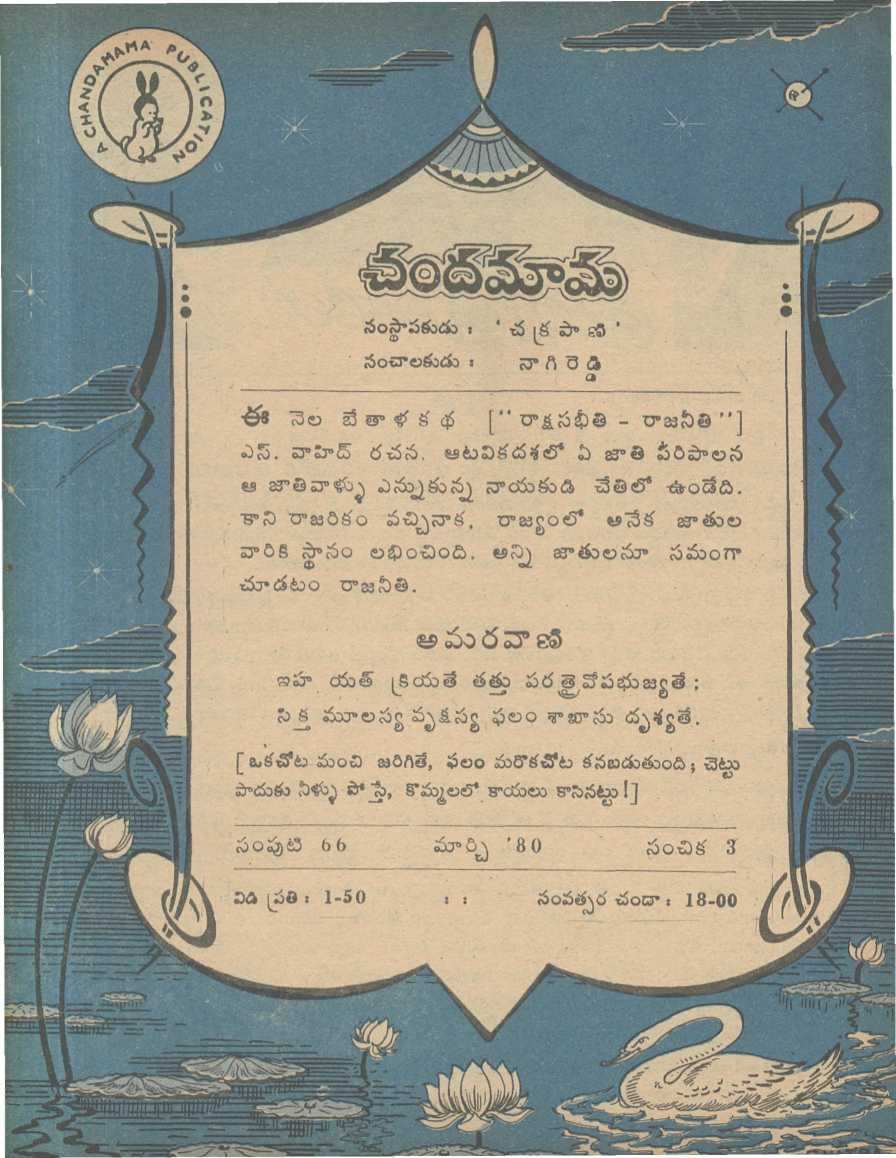 A CHANDAMAMA PUBLICATION
చందమామ
సంస్థాపకుడు : ' చక్రపాణి '
సంచాలకుడు : నాగిరెడ్డి
ఈ నెల బేతాళ కథ ["రాక్షసభీతి - రాజనీతి"]
ఎస్. వాహిద్ రచన. ఆటవికదశలో ఏ జాతి పరిపాలన
ఆ జాతివాళ్ళు ఎన్నుకున్న నాయకుడి చేతిలో ఉండేది.
కాని రాజరికం వచ్చినాక, రాజ్యంలో అనేక జాతుల
వారికి స్థానం లభించింది. అన్ని జాతులనూ సమంగా
చూడటం రాజనీతి.
అమరవాణి
ఇహ యత్ క్రియతే తత్తు పరత్రైవోపభుజ్యతే ;
సిక్త మూలస్య వృక్షస్య ఫలం శాఖాసు దృశ్యతే.
[ ఒకచోట మంచి జరిగితే, ఫలం మరొకచోట కనబడుతుంది ; చెట్టు
పాదుకు నీళ్ళు పోస్తే, కొమ్మలలో కాయలు కాసినట్టు !]
సంపుటి 66 మార్చి '80 సంచిక 3
విడి ప్రతి : 1-50 : : సంవత్సర చందా : 18-00